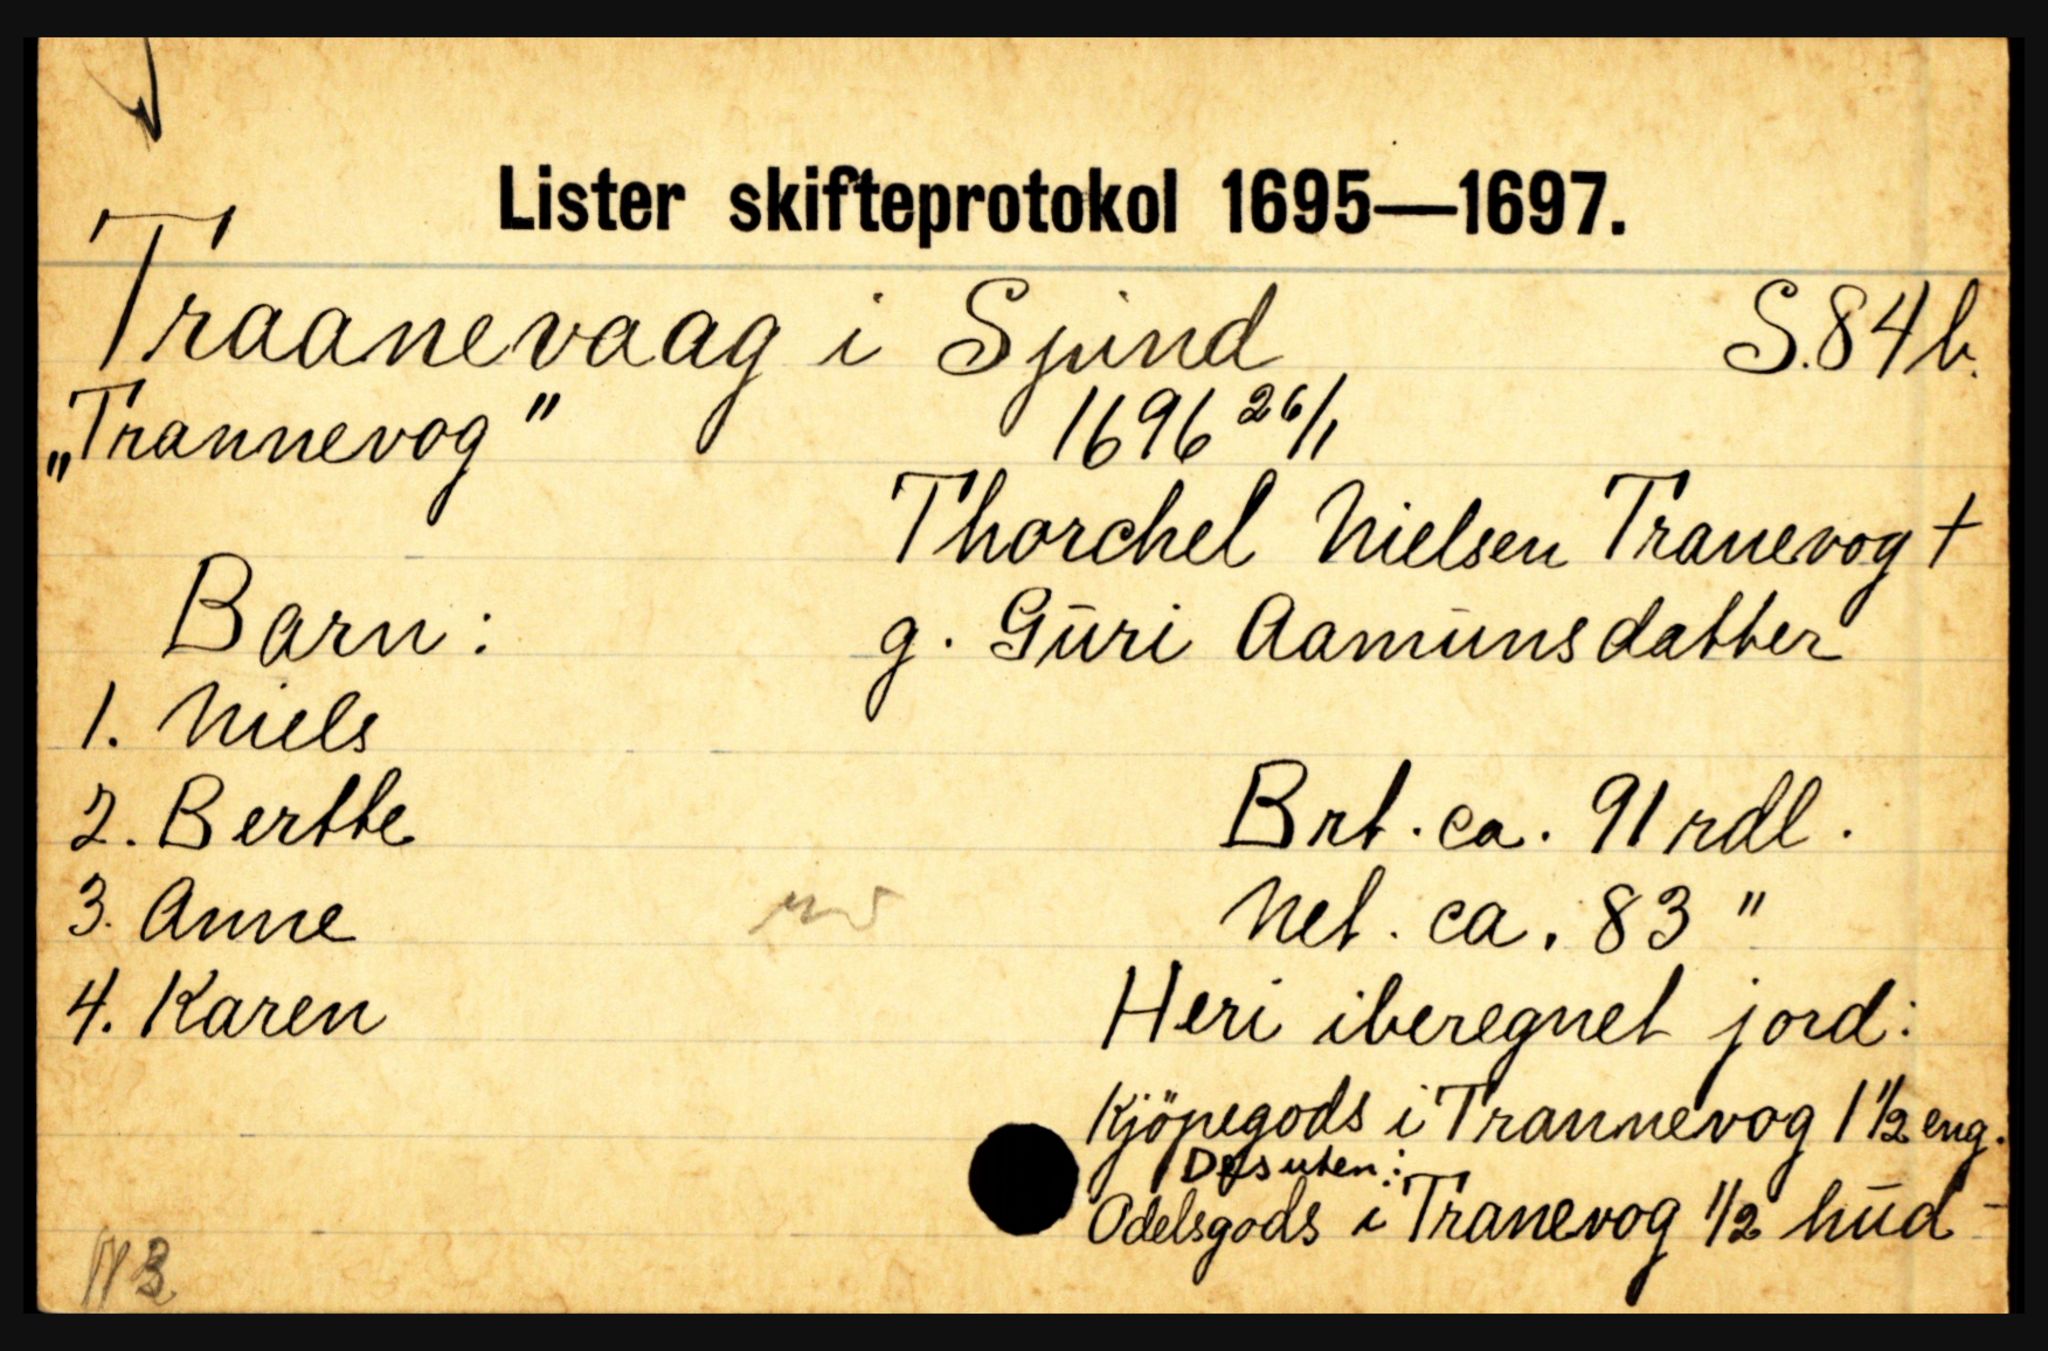 Lister skifteprotokol 1695—1697.
Traanevaag i Spind S. 84 b.
„Trannevog" 1696 26/1
Thorchel Nielsen Tranevog †
Barn: g. Gūri Aamūnsdatter
1. Niels
2. Berthe Brt. ca. 91 rdl.
3. Anne Net. ca. 83 "
4. Karen Heri iberegnet jord:
Kjöpegods i Trannevog 1 1/2 eng.
Desuten:
Odelsgods i Tranevog 1/2 hūd